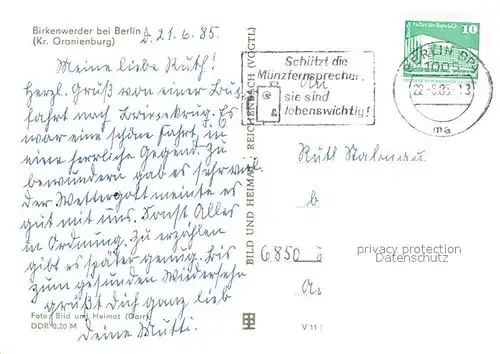 Birkenwerder bei Berlin
(Kr. Oranienburg)
d. 21.6.85.
Meine liebe Ruth!
Herzl. Gruß von einer Bus
fahrt nach Es
war eine schöne Fahrt, in
eine herrliche Gegend. Zu
bewundern gab es sehr viel.
Der Wettergott meinte es
gut mit uns. Sonst Alles
in Ordnung. Zu erzählen
gibt es später genug. Bis
zum gesunden Wiedersehn
grüßt Dich ganz lieb
Deine Mutti.
Foto: Bild und Heimat (Darr)
DDR 0,20 M
BILD UND HEIMAT REICHENBACH (VOGTL)
V 11
Schützt die
Münzfernsprecher,
sie sind
lebenswichtig!
10
Palast der Republik
BERLIN BPA
1085
ma
An
Ruth
b
6850
privacy protection
Datenschutz